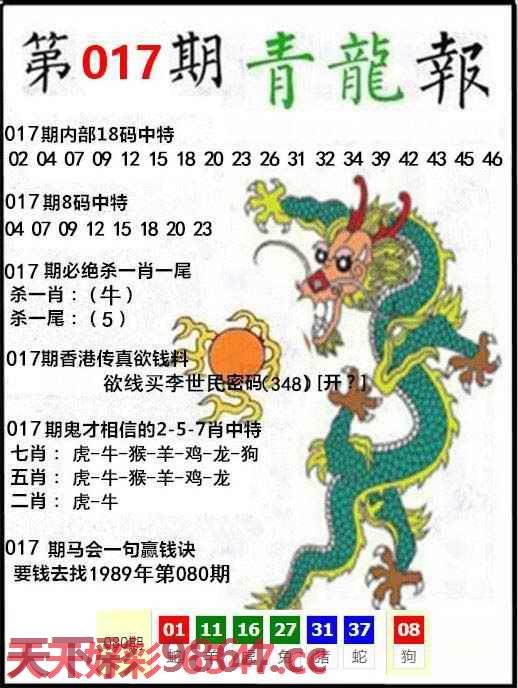 第017期青龍報
017期内部18码中特
02 04 07 09 12 15 18 20 23 26 31 32 34 39 42 43 45 46
017期8码中特
04 07 09 12 15 18 20 23
017期必绝杀一肖一尾
杀一肖：(牛)
杀一尾：(5)
017期香港传真欲钱料
欲线买李世民密码(348)[开?]
017期鬼才相信的2-5-7肖中特
七肖：虎-牛-猴-羊-鸡-龙-狗
五肖：虎-牛-猴-羊-鸡-龙
二肖：虎-牛
017期马会一句赢钱诀
要钱去找1989年第080期
080期 01 11 16 27 31 37 08
蛇 羊 虎 兔 猪 蛇 狗
天下好彩98647.cc